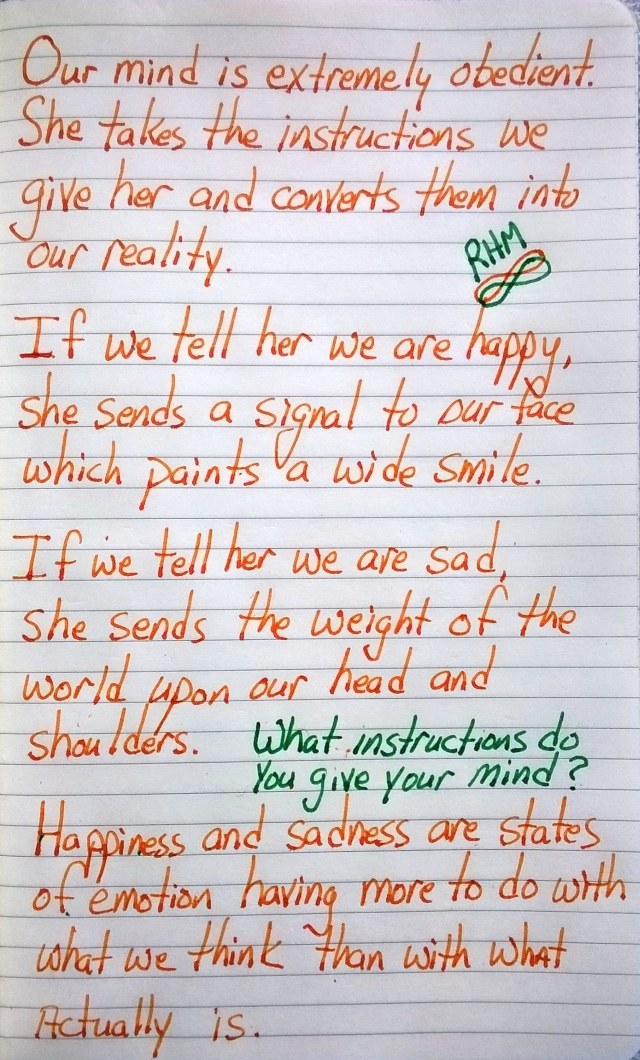 Our mind is extremely obedient.
She takes the instructions we
give her and converts them into
our reality.
RHM
If we tell her we are happy,
she sends a signal to our face
which paints a wide smile.
If we tell her we are sad,
she sends the weight of the
world upon our head and
shoulders.
What instructions do
you give your mind?
Happiness and sadness are states
of emotion having more to do with
what we think than with what
Actually is.